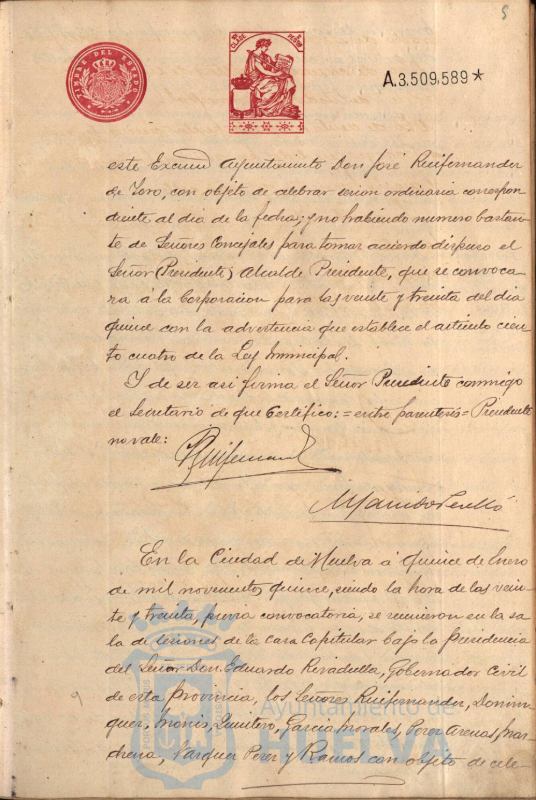 5
TIMBRE DEL ESTADO
CLASE
A.3.509.589*
este Excmo Ayuntamiento Don José Ruifernandez
de Toro, con objeto de celebrar sesion ordinaria correspon
diente al dia de la fecha; y no habiendo numero bastan-
te de Señores Concejales para tomar acuerdo dispuso el
Señor (Presidente) Alcalde Presidente, que se convoca
ra á la Corporacion para las veinte y treinta del dia
quince con la advertencia que establece el articulo cien
to cuatro de la Ley Municipal.
Y de ser asi firma el Señor Presidente conmigo
el Secretario de que Certifico: = entre parentesis = Presidente
no vale:
Ruifernandez
En la Ciudad de Huelva á quince de Enero
de mil novecientos quince, siendo la hora de las vein-
te y treinta, previa convocatoria, se reunieron en la sa
la de sesiones de la casa Capitular bajo la Presidencia
del Señor Don Eduardo Rivadulla, Gobernador Civil
de esta Provincia, los Señores Ruifernandez, Domin-
guez, Monis, Quintero, Garcia Morales, Perez Arenas, Mar
chena, Vazquez Perez y Ramos con objeto de cele-
Ayuntamiento de
HUELVA